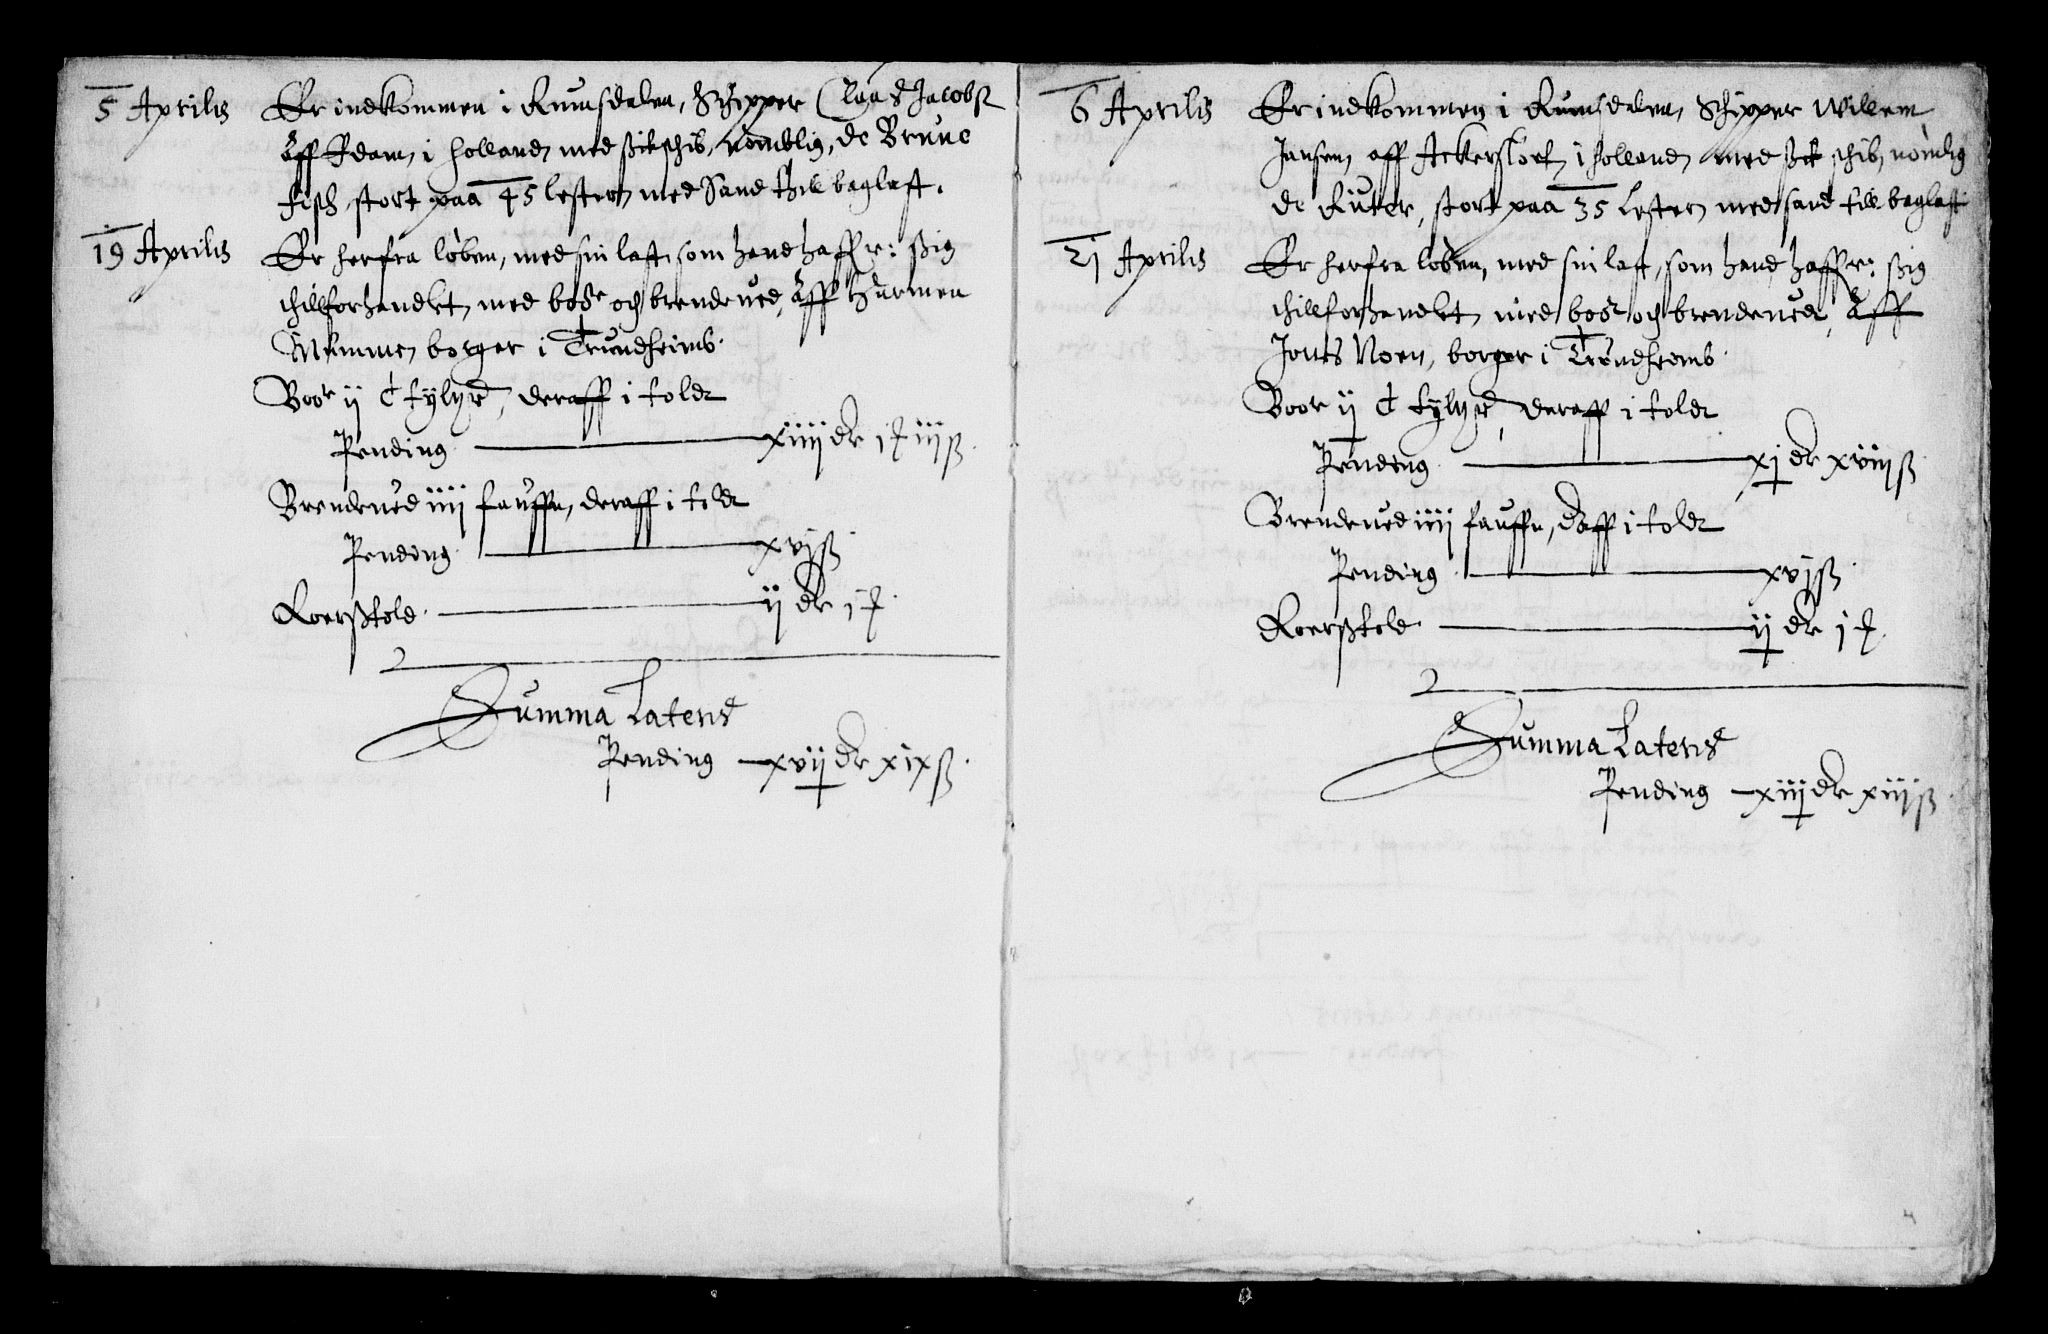 5 Aprilis Er indkommen i Rumsdalen, Schipper Claus Jacobs
Aff Edam, i Holland, med ßit schib, nömblig, de Brune
fisch, stort paa 45 lester, med Sand till baglast.
19 Aprilis Er herfra löben, med sin last, som hand haffr: ßig
thillforhandlet, med boor och brendeued, Aff Hürmen
Mumme, borger i Trundheimb.
Boor ij C tylter, deraff i toldt
Pending xiiij dr 1 ₰ iij ß
Brendeued iiij fauffn, deraff i toldt
Pending xvj ß
Roerßtold ij dr 1 ₰
Summa Lateris
Pending xvij dr xix ß
6 Aprilis Er indkommen i Rumsdalen, Schipper Willem
Jansen, aff Ackersloet, i Holland, med ßit schib, nömlig
de Ruter, stort paa 35 Lester, med sand till baglast
21 Aprilis Er herfra löben, med sin last, som hand haffr: ßig
thillforhandlet, med boor och brendeued, Aff
Jonss Noen, borger i Trundheimb
Boor ij C tylter, deraff i toldt
Pending xj dr xviij ß
Brendeued iiij fauffn, deraff i toldt
Pending xvj ß
Roerßtold ij dr 1 ₰
Summa Lateris
Pending xiiij dr xiij ß